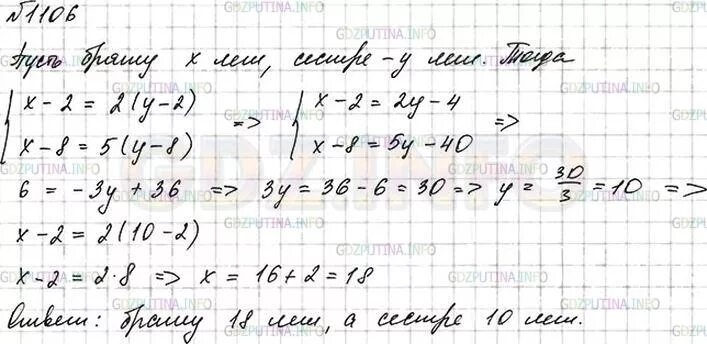 №1106
Пусть брату x лет, сестре – y лет. Тогда
{ x - 2 = 2(y - 2) => { x - 2 = 2y - 4 =>
{ x - 8 = 5(y - 8) { x - 8 = 5y - 40
6 = -3y + 36 => 3y = 36 - 6 = 30 => y = 30/3 = 10 =>
x - 2 = 2(10 - 2)
x - 2 = 2·8 => x = 16 + 2 = 18
Ответ: брату 18 лет, а сестре 10 лет.
GDZPUTINA.INFO
GDZ.INFO